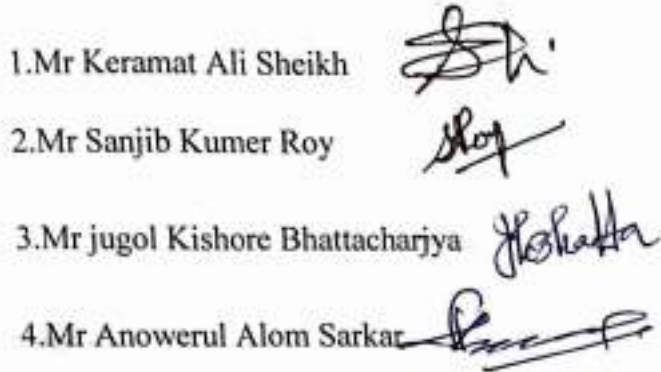 1.Mr Keramat Ali Sheikh
2.Mr Sanjib Kumer Roy SRoy
3.Mr jugol Kishore Bhattacharjya
4.Mr Anowerul Alom Sarkar